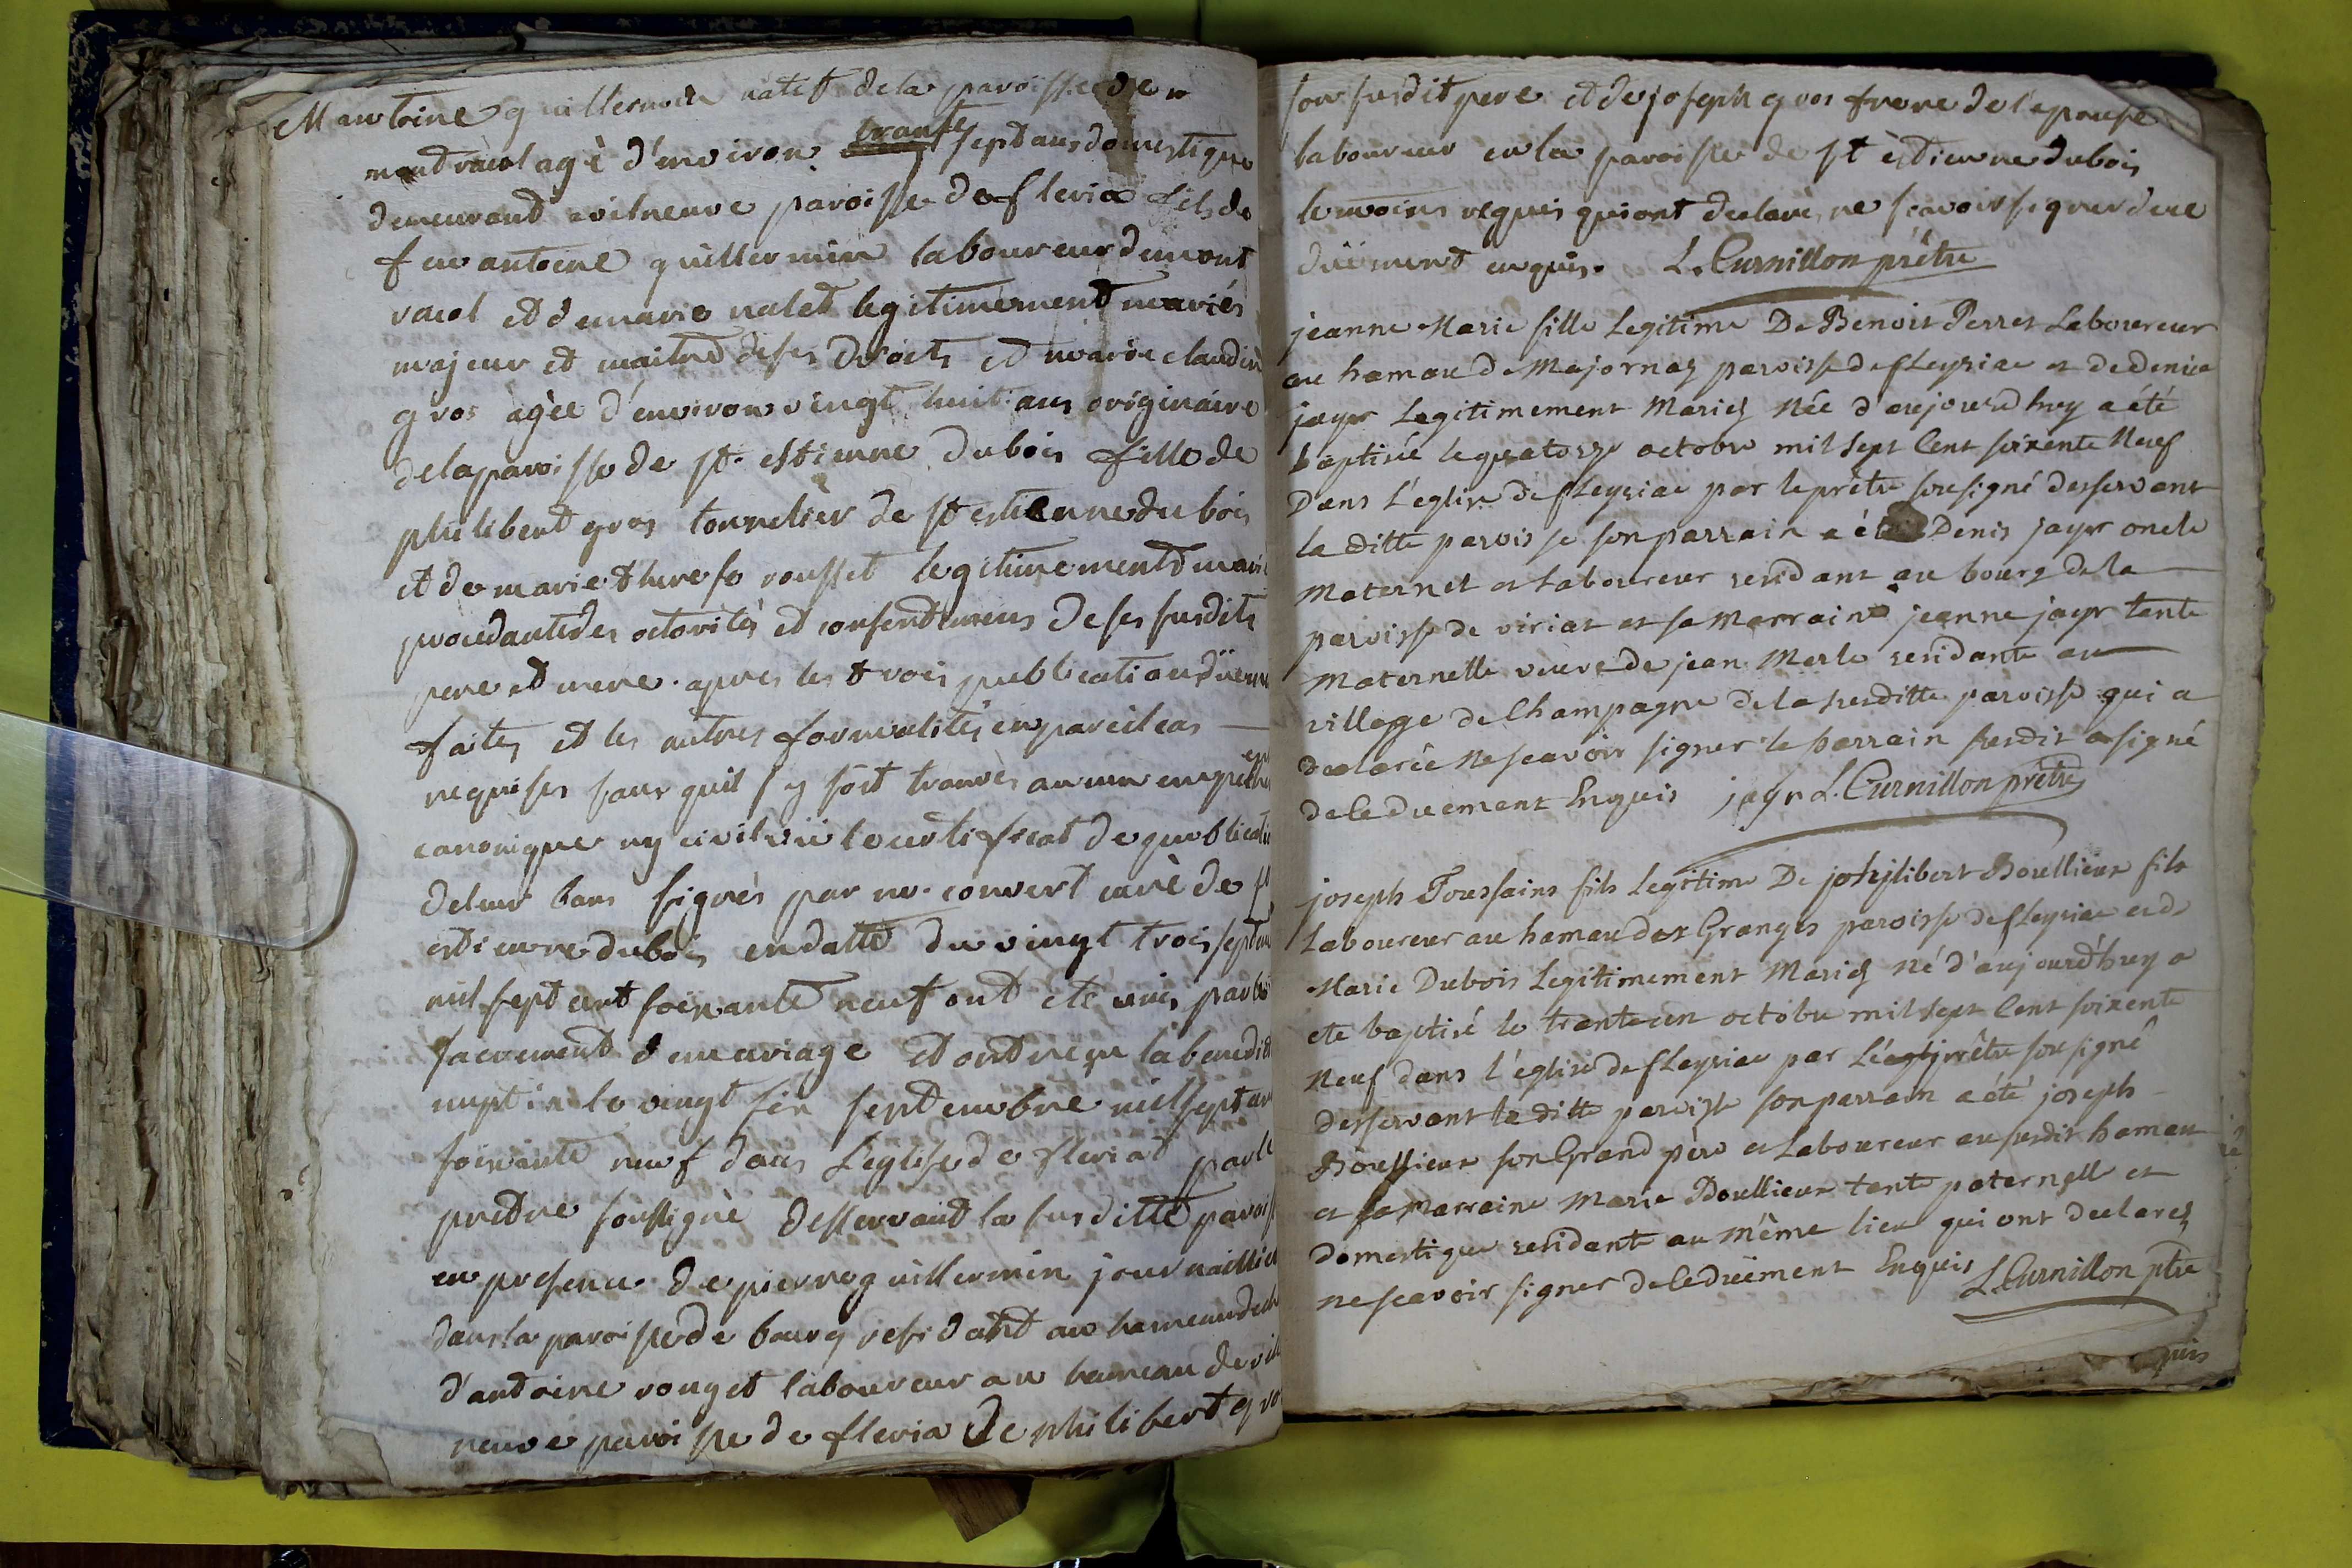 M antoine guillermin natif de la paroisse de
montracol agè d'environ trante sept ans domestique
demeurant a vilneuve paroisse de fleria fils de
feu antoine guillermin laboureur de mont
racol et de marie nalet legitimement mariés
majeur et maitre de ses droits et marie claudin
gros agèe d'environ vingt huit ans originaire
de la paroisse de st. estienne du bois fille de
philibert gros tonnelier de st estienne du bois
et de marie therese rousset legitimement marié
procedante des octorités et consentemens de ses susdits
pere et mere. apres les trois publications düem
faites et les autres formalités en pareil cas
requises sans quil s'y soit trouvés aucun empeche
canonique ny civil vü le certificat de publicati
de leur bans signés par mr. convert curè de st
estienne dubois en datte du vingt trois septem
mil sept cent soixante neuf ont eté unis par le
sacrement de mariage et ont reçu la benedict
nupti le vingt six septembre mil sept cen
soixante neuf dans L'eglise de fleriat par le
pretre soussignè desservant la susditte parois
en presence de pierre guillermin journaillier
dans la paroisse de bourg residant au hameau de
d'antoine rouget laboureur au hameau de vil
neuve paroisse de fleria de philibert gro
son susdit pere et de joseph gros frere de lepouse
laboureur en la paroisse de st ètienne dubois
temoins requis qui ont declarés ne scavoir signer de ce
düement enquis. L. Curnillon prêtre
jeanne Marie fille Legitime De Benoit Perret Laboureur
au hamau de Majornas paroisse de fleyriac et de denise
jayr Legitimement Mariés Née d'aujourdhuy a été
baptisée le quatorze octobre mil sept Cent soixente Neuf
Dans L'eglise de fleyriac par le prêtre sousigné desservant
la ditte paroisse son parrain a été Denis jayr oncle
Maternel et Laboureur residant au bourg de la
paroisse de viriat et sa Marraine jeanne jayr tante
Maternelle veuve de jean Merle residante au
village de Champagne de la susditte paroisse qui a
declarée Ne scavoir signer le parrain susdit a signé
de ce duement Enquis jayr L. Curnillon prêtre
joseph Toussains fils Legitime De philibert Boullieux fils
Laboureur au hamau des Granges paroisse de fleyriac et de
Marie Dubois Legitimement Mariés Né d'aujourd'huy a
ete baptisé le trente un octobre mil sept Cent soixente
Neuf dans l'église de fleyriac par Le prêtre sousigné
desservant la ditte paroisse son parrain a été joseph
Boullieux son Grand père et Laboureur au susdit hamau
et sa Marraine Marie Boullieux tante paternelle et
domestique residante au même lieu qui ont declarés
ne scavoir signer de ce düement Enquis L. Curnillon ptre